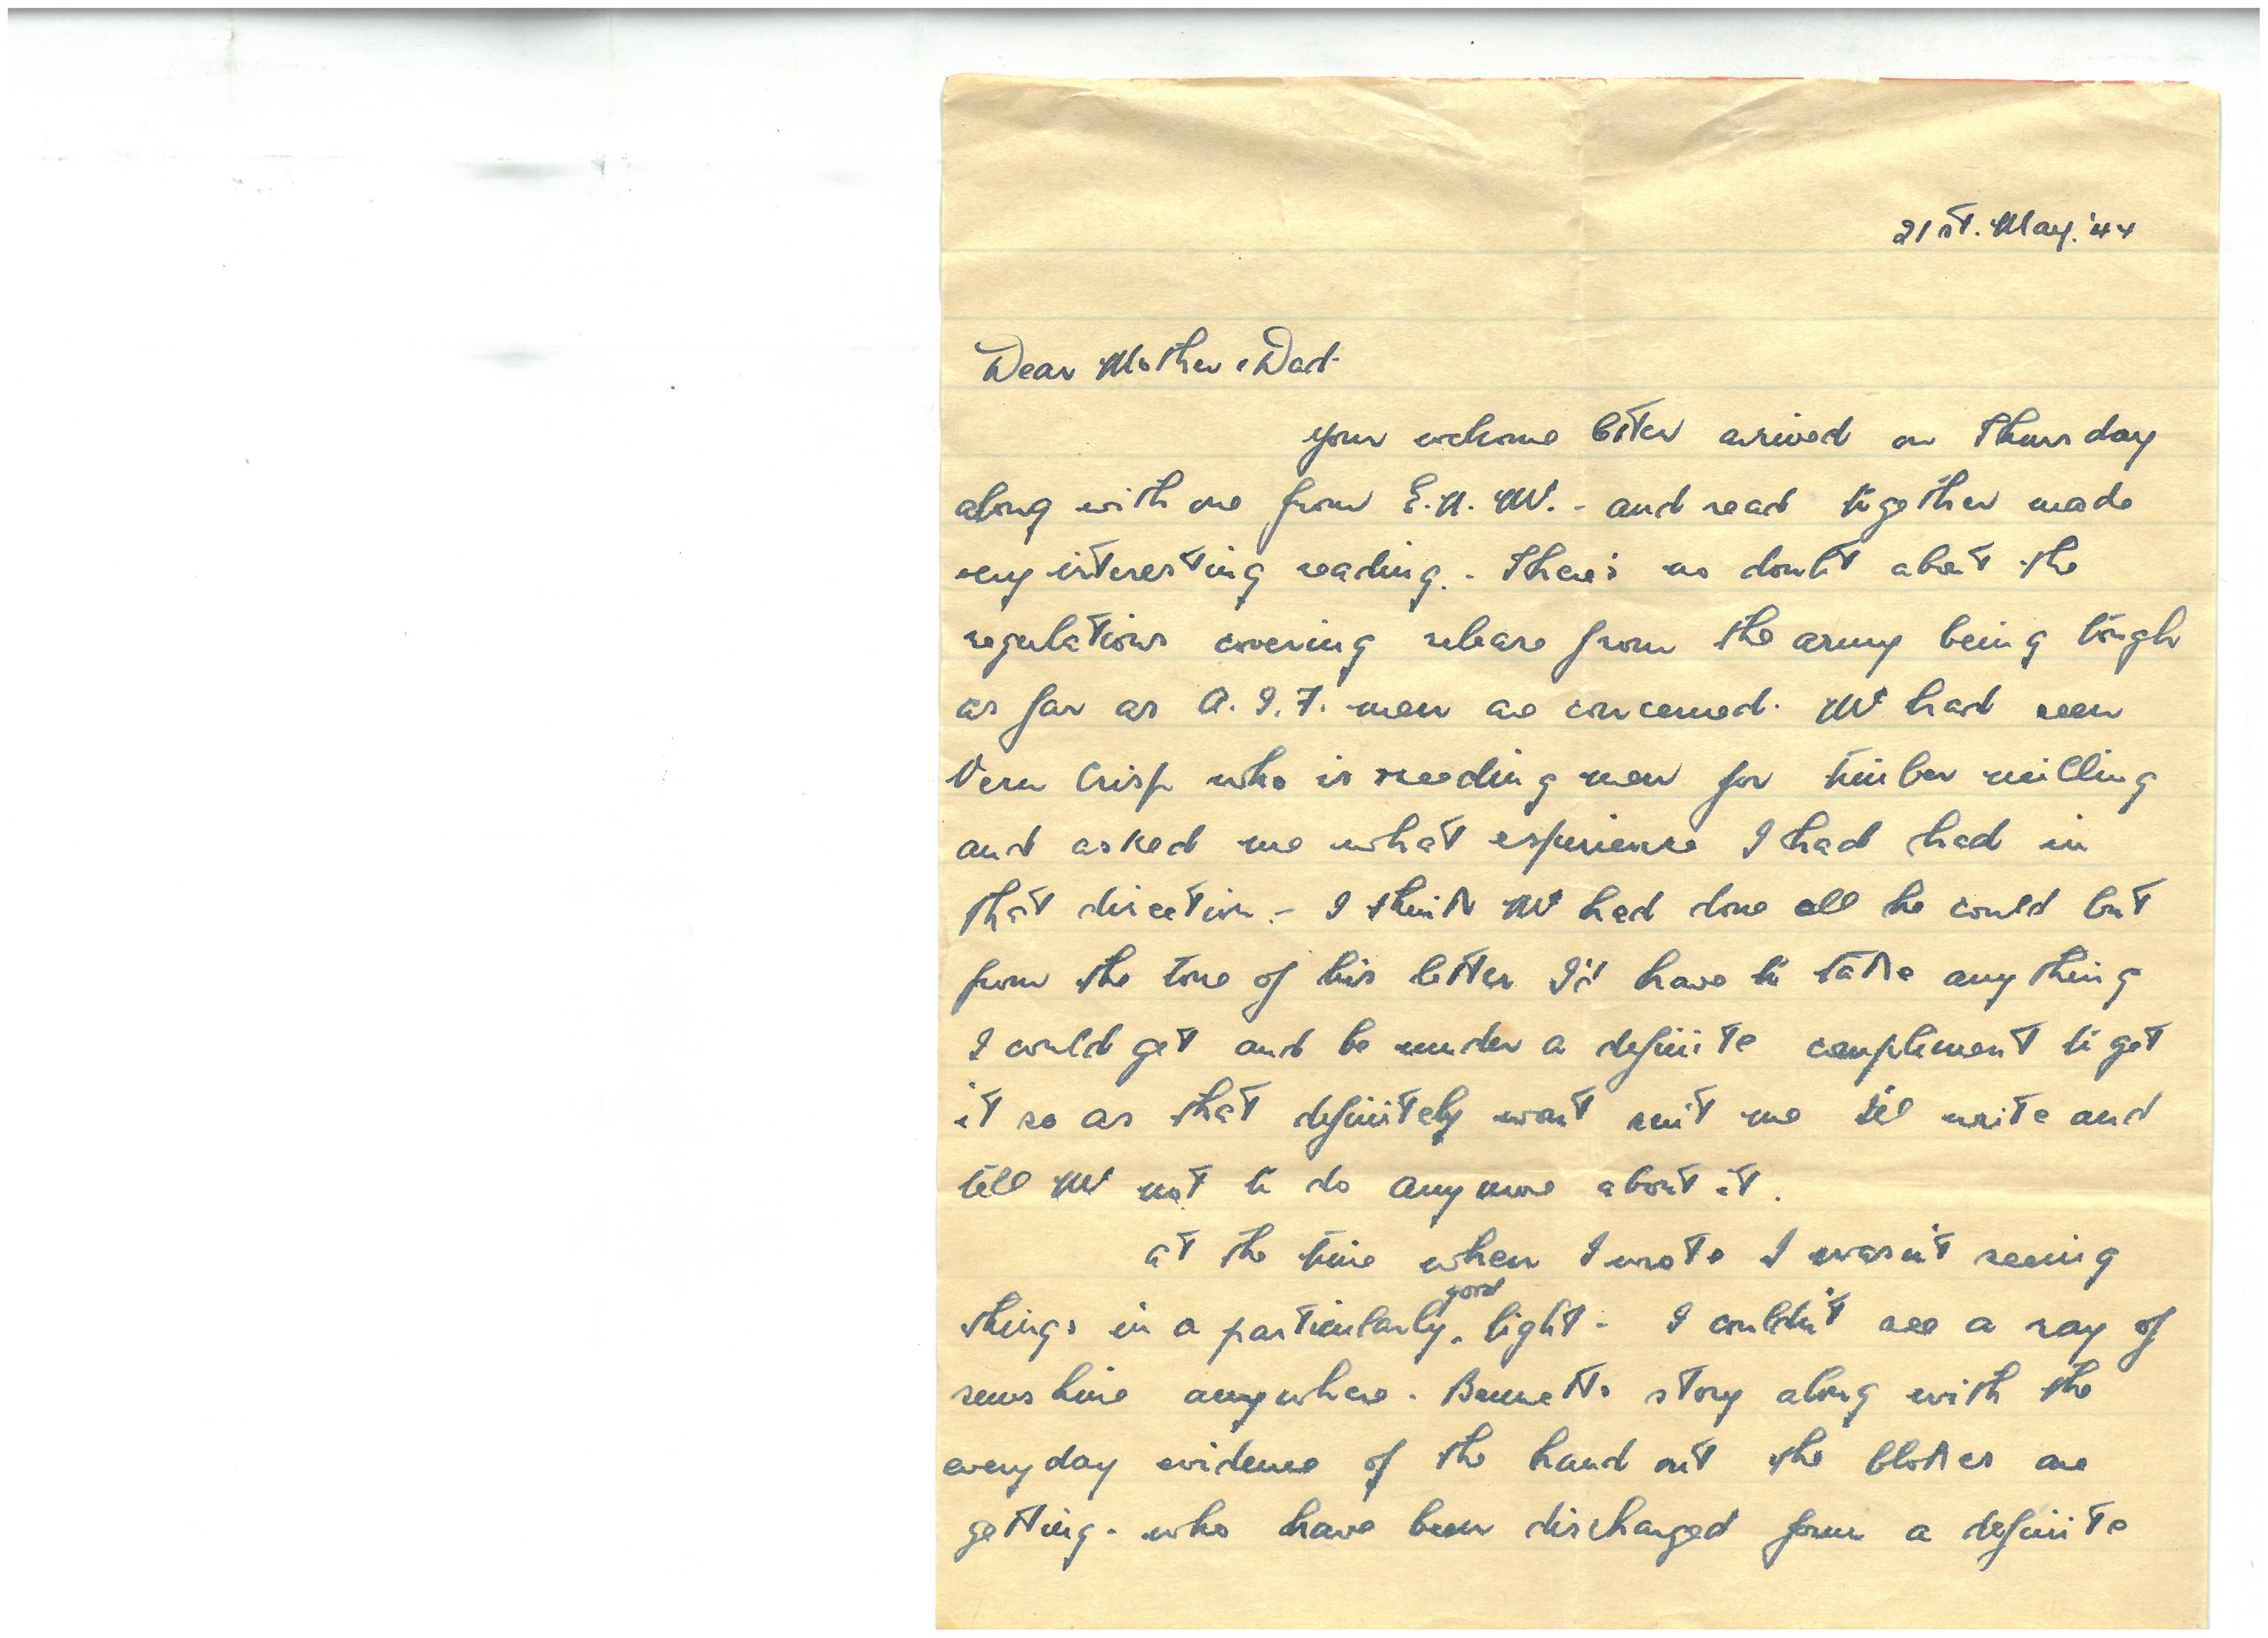 21st. May. '44
Dear Mother & Dad.
your welcome letter arrived on Thursday
along with one from E.A.W. - and read together made
very interesting reading. - There's no doubt about the
regulations covering release from the army being tough
as far as A.I.F. men are concerned. W had seen
Vern Crisp who is needing men for timber milling
and asked me what experience I had had in
that direction. - I think W had done all he could but
from the tone of his letter I'd have to take anything
I could get and be under a definite compliment to get
it so as that definitely wont suit me I'll write and
tell W not to do anymore about it.
at the time when I wrote I wasn't seeing
things in a particularly good light - I couldn't see a ray of
sunshine anywhere. Bennetts story along with the
everyday evidence of the hand out the blokes are
getting. who have been discharged form a definite